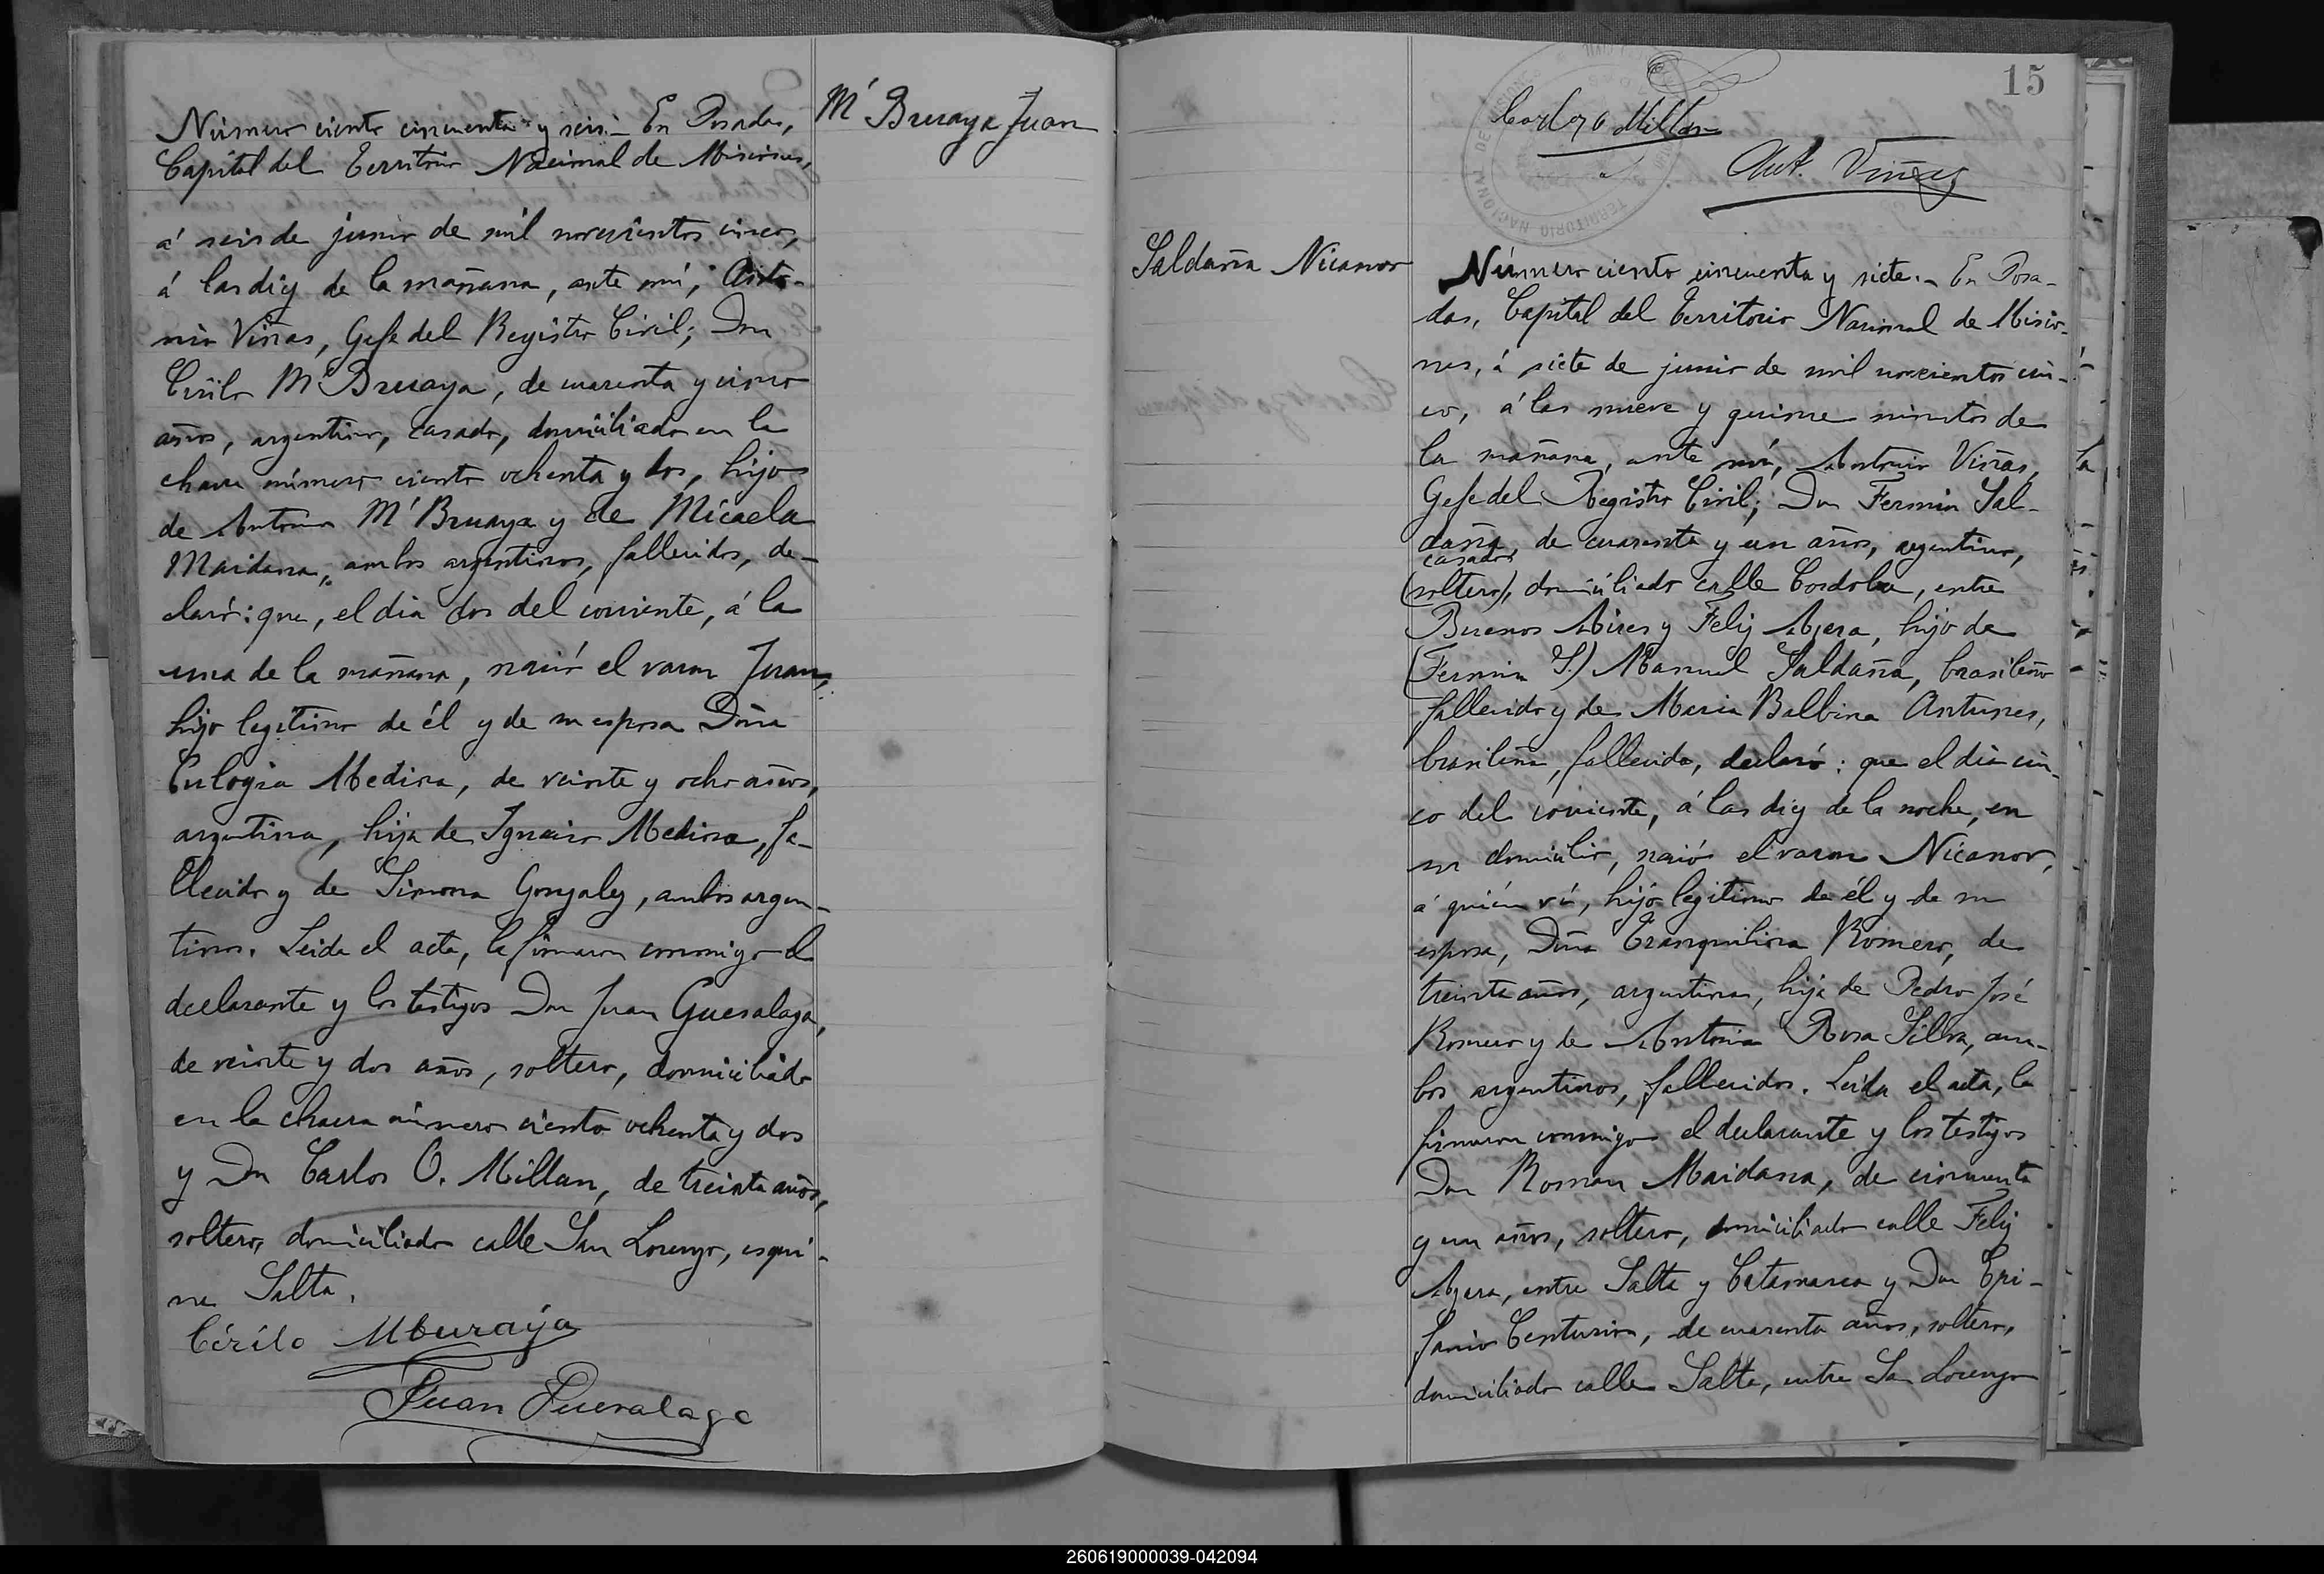 Número ciento cincuenta y seis.- En Posadas,
Capital del Territorio Nacional de Misiones,
á seis de junio de mil novecientos cinco,
á las diez de la mañana, ante mí, Anto-
nio Viñas, Gefe del Registro Civil; Don
Cirilo M' Bruaya, de cuarenta y cinco
años, argentino, casado, domiciliado en la
chacra número ciento ochenta y dos, hijo
de Antonio M' Bruaya y de Micaela
Maidana, ambos argentinos, fallecidos, de-
claró: que, el dia dos del corriente, á la
una de la mañana, nació el varon Juan,
hijo legítimo de él y de su esposa Doña
Eulogia Medina, de veinte y ocho años,
argentina, hija de Ignacio Medina, fa-
llecido y de Simona Gonzalez, ambos argen-
tinos. Leida el acta, la firmaron conmigo el
declarante y los testigos Don Juan Guesalaga,
de veinte y dos años, soltero, domiciliado
en la chacra número ciento ochenta y dos
y Don Carlos O. Millan, de treinta años,
soltero, domiciliado calle San Lorenzo, esqui-
na Salta.
Cirilo Mburaya
Juan Guesalaga
M' Bruaya Juan
15
Carlos O Millan
Ant. Viñas
TERRITORIO NACIONAL DE MISIONES
Saldaña Nicanor
Número ciento cincuenta y siete.- En Posa-
das, Capital del Territorio Nacional de Misio-
nes, á siete de junio de mil novecientos cin-
co, á las nueve y quince minutos de
la mañana, ante mí, Antonio Viñas,
Gefe del Registro Civil; Don Fermin Sal-
daña, de cuarenta y un años, argentino,
casado
(soltero), domiciliado calle Cordoba, entre
Buenos Aires y Feliz Azara, hijo de
(Fermin S.) Manuel Saldaña, brasileño
fallecido y de Maria Balbina Antunes,
brasileña, fallecida, declaró: que el dia cin-
co del corriente, á las diez de la noche, en
su domicilio, nació el varon Nicanor,
á quién ví, hijo legítimo de él y de su
esposa, Doña Tranquilina Romero, de
treinta años, argentina, hija de Pedro José
Romero y de Antonia Rosa Silva, am-
bos argentinos, fallecidos. Leida el acta, la
firmaron conmigo el declarante y los testigos
Don Roman Maidana, de cincuenta
y un años, soltero, domiciliado calle Feliz
Azara, entre Salta y Catamarca y Don Epi-
fanio Centurion, de cuarenta años, soltero,
domiciliado calle Salta, entre San Lorenzo
260619000039-042094